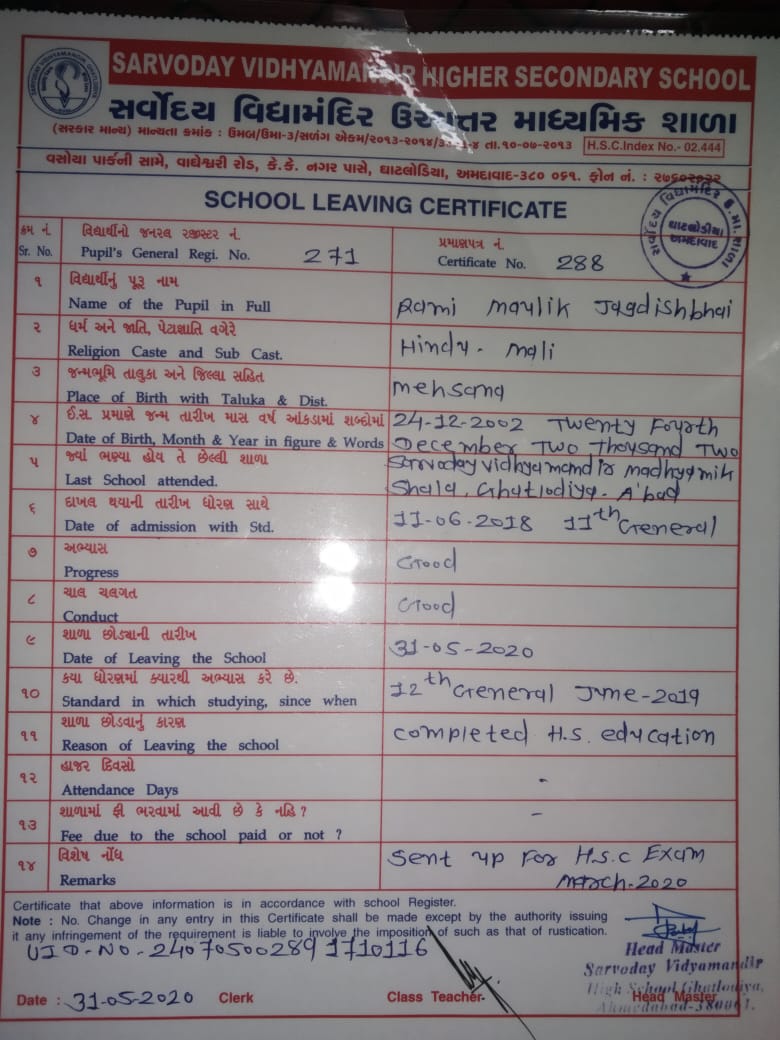 SARVODAY VIDHYAMANDIR HIGHER SECONDARY SCHOOL
સર્વોદય વિદ્યામંદિર ઉચ્ચત્તર માધ્યમિક શાળા
(સરકાર માન્ય) માન્યતા ક્રમાંક : ઉમબ/ઉમા-૩/સળંગ એકમ/૨૦૧૩-૨૦૧૪/ તા.૧૦-૦૭-૨૦૧૩ H.S.C.Index No.- 02.444
વસોયા પાર્કની સામે, વાઘેશ્વરી રોડ, કે.કે. નગર પાસે, ઘાટલોડિયા, અમદાવાદ-૩૮૦ ૦૬૧. ફોન નં. : ૨૭૬૦૨૦૨૨
SCHOOL LEAVING CERTIFICATE
ઘાટલોડીયા
અમદાવાદ
ક્રમ નં. વિદ્યાર્થીનો જનરલ રજીસ્ટર નં. પ્રમાણપત્ર નં.
Sr. No. Pupil's General Regi. No. 271 Certificate No. 288
૧ વિદ્યાર્થીનું પૂરૂ નામ
Name of the Pupil in Full Rami Maulik Jagdishbhai
૨ ધર્મ અને જાતિ, પેટાજ્ઞાતિ વગેરે
Religion Caste and Sub Cast. Hindu - Mali
૩ જન્મભૂમિ તાલુકા અને જિલ્લા સહિત
Place of Birth with Taluka & Dist. Mehsana
૪ ઈ.સ. પ્રમાણે જન્મ તારીખ માસ વર્ષ આંકડામાં શબ્દોમાં 24-12-2002 Twenty Fourth
Date of Birth, Month & Year in figure & Words December Two Thousand Two
૫ જ્યાં ભણ્યા હોય તે છેલ્લી શાળા Sarvoday vidhyamamdir madhyamik
Last School attended. Shala, Ghatlodiya - A'bad
૬ દાખલ થયાની તારીખ ધોરણ સાથે
Date of admission with Std. 11-06-2018 11th General
૭ અભ્યાસ
Progress Good
૮ ચાલ ચલગત
Conduct Good
૯ શાળા છોડ્યાની તારીખ
Date of Leaving the School 31-05-2020
૧૦ કયા ધોરણમાં ક્યારથી અભ્યાસ કરે છે.
Standard in which studying, since when 12th General June-2019
૧૧ શાળા છોડવાનું કારણ
Reason of Leaving the school completed H.S. education
૧૨ હાજર દિવસો
Attendance Days -
૧૩ શાળામાં ફી ભરવામાં આવી છે કે નહિ ?
Fee due to the school paid or not ? -
૧૪ વિશેષ નોંધ Sent up For H.S.C Exam
Remarks March-2020
Certificate that above information is in accordance with school Register.
Note : No. Change in any entry in this Certificate shall be made except by the authority issuing
it any infringement of the requirement is liable to involve the imposition of such as that of rustication.
UID-NO-240705002891710116
Head Master
Sarvoday Vidyamandir
High School Ghatlodiya,
Ahmedabad-380061.
Date : 31-05-2020 Clerk Class Teacher Head Master